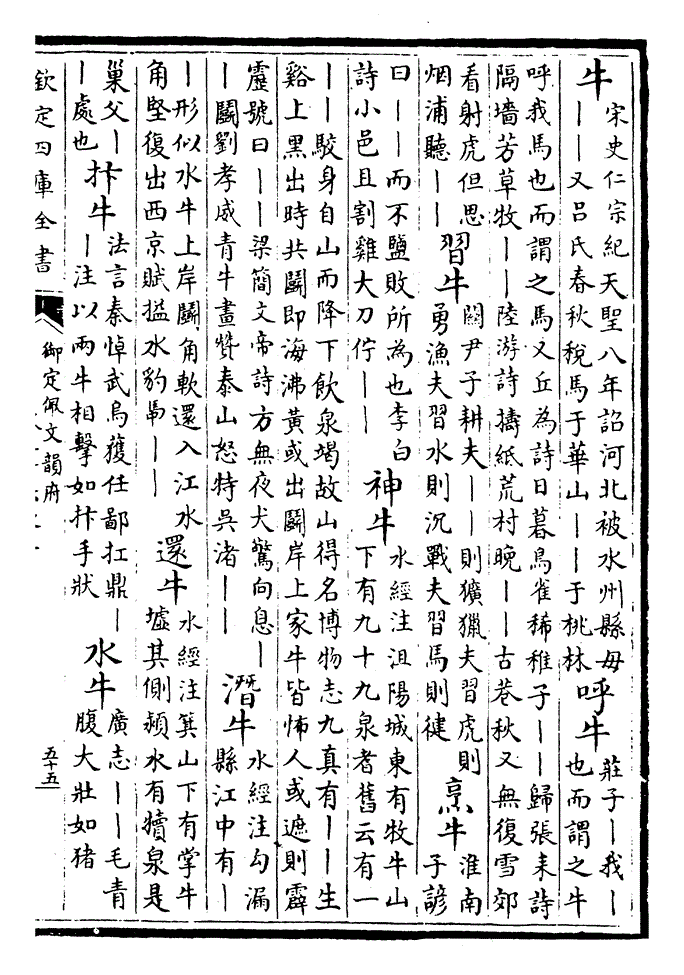 牛 宋史仁宗紀天聖八年詔河北被水州縣毋丨丨又吕氏春秋稅馬于華山丨丨于桃林 呼牛 莊子丨我丨也而謂之牛
呼我馬也而謂之馬又丘為詩日暮鳥雀稀稚子丨丨歸張耒詩
隔墻芳草牧丨丨陸游詩擣紙荒村晚丨丨古巷秋又無復雪郊
看射虎但思烟浦聽丨丨 習牛 關尹子耕夫丨丨則獷獵夫習虎則勇漁夫習水則沉戰夫習馬則健 烹牛 淮南子諺
曰丨丨而不鹽敗所為也李白詩小邑且割雞大刀佇丨丨 神牛 水經注沮陽城東有牧牛山下有九十九泉耆舊云有一
丨丨駮身自山而降下飲泉竭故山得名博物志九真有丨丨生
谿上黑出時共鬬即海沸黄或出鬬岸上家牛皆怖人或遮則霹
靂號曰丨丨梁簡文帝詩方無夜犬驚向息丨丨鬬劉孝威青牛畫贊泰山怒特吳渚丨丨 潛牛 水經注勾漏縣江中有丨
丨形似水牛上岸鬬角軟還入江水角堅復出西京賦搤水豹馽丨丨 還牛 水經注箕山下有掌牛墟其側潁水有犢泉是
巢父丨丨處也 抃牛 法言秦悼武烏獲任鄙扛鼎丨丨注以兩牛相擊如抃手狀 水牛 廣志丨丨毛青腹大壯如猪
欽定四庫全書
御定佩文韻府
五十五